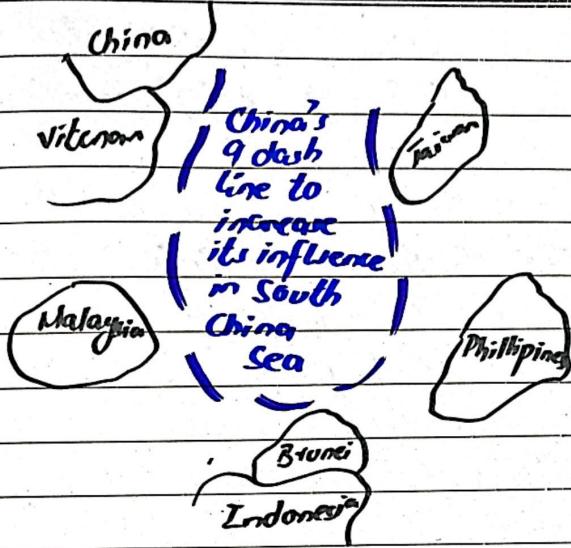 China
Vitenam
China's
9 dash
line to
increase
its influence
in South
China
Sea
Taiwan
Malaysia
Phillipines
Brunei
Indonesia